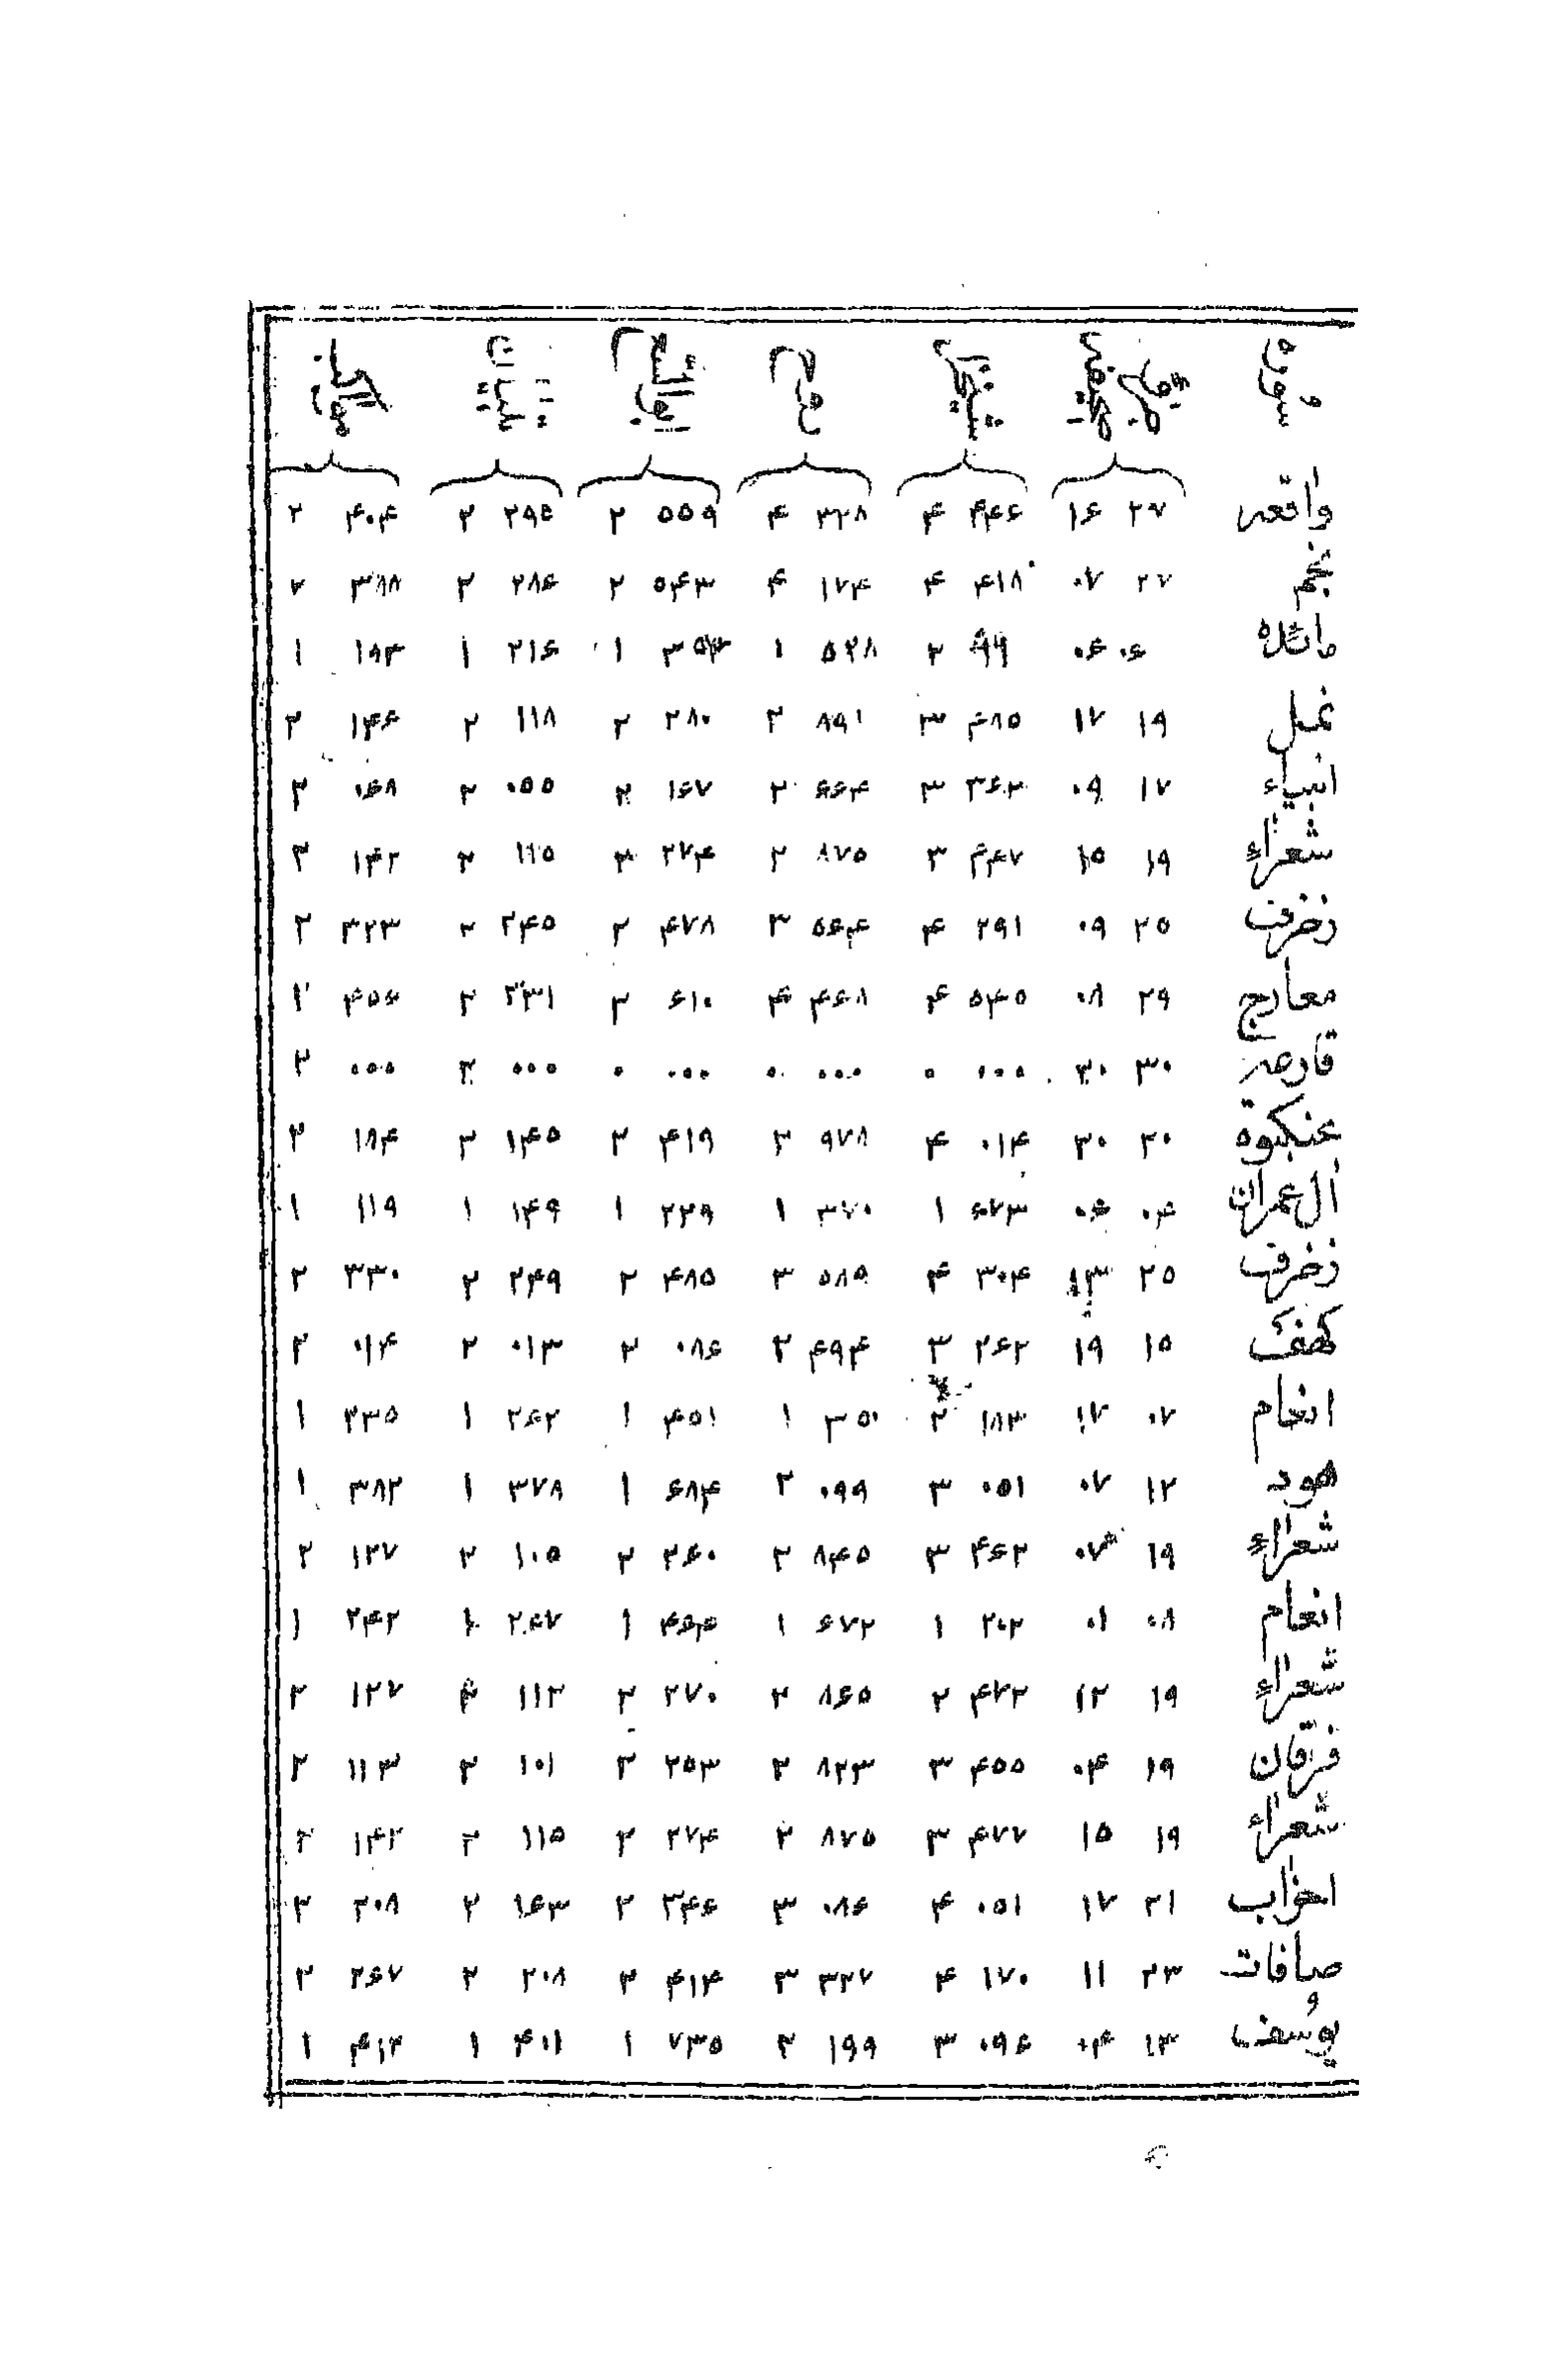 سوره
واقعه ۲۷ ۱۶ ۴۴۶ ۴ ۳۲۸ ۴ ۵۵۹ ۲ ۲۹۵ ۲ ۴۰۴ ۲
نجم ۲۷ ۰۷ ۴۱۸ ۴ ۱۷۴ ۴ ۵۴۳ ۲ ۲۸۶ ۲ ۳۸۸ ۲
مائده ۰۶ ۰۶ ۲ ۵۲۸ ۱ ۱ ۲۱۶ ۱ ۱۹۳ ۱
نمل ۱۹ ۱۷ ۴۸۵ ۳ ۸۹۱ ۲ ۲۸۰ ۲ ۱۱۸ ۲ ۱۴۶ ۲
انبیاء ۱۷ ۰۹ ۳۶۲ ۳ ۶۶۴ ۲ ۱۶۷ ۲ ۰۵۵ ۲ ۰۶۸ ۲
شعراء ۱۹ ۱۵ ۴۴۷ ۳ ۸۷۵ ۲ ۲۷۴ ۲ ۱۱۵ ۲ ۱۴۲ ۲
زخرف ۲۵ ۰۹ ۲۹۱ ۴ ۵۶۴ ۳ ۴۷۸ ۲ ۲۴۵ ۲ ۳۲۳ ۲
معارج ۲۹ ۰۸ ۵۴۵ ۴ ۴۶۸ ۴ ۶۱۰ ۲ ۳۳۱ ۲ ۴۵۶ ۲
قارعه ۳۰ ۳۰ ۰۰۰ ۰ ۰۰۰ ۰ ۰۰۰ ۰ ۰۰۰ ۲ ۰۰۰ ۲
عنکبوة ۲۰ ۳۰ ۰۱۴ ۴ ۹۷۸ ۲ ۴۱۹ ۲ ۱۴۵ ۲ ۱۸۴ ۲
ال عمران ۰۴ ۰۶ ۶۷۳ ۱ ۳۷۰ ۱ ۲۲۹ ۱ ۱۴۹ ۱ ۱۱۹ ۱
زخرف ۲۵ ۱۳ ۳۰۴ ۴ ۵۸۹ ۳ ۴۸۵ ۲ ۲۴۹ ۲ ۳۳۰ ۲
کهف ۱۵ ۱۹ ۲۶۲ ۳ ۴۹۴ ۲ ۰۸۶ ۲ ۰۱۳ ۲ ۰۱۴ ۲
انعام ۰۷ ۱۷ ۱۸۳ ۲ ۳۵۰ ۱ ۴۵۱ ۱ ۲۶۲ ۱ ۲۳۵ ۱
هود ۱۲ ۰۷ ۰۵۱ ۳ ۰۹۹ ۲ ۶۸۴ ۱ ۳۷۸ ۱ ۳۸۲ ۱
شعراء ۱۹ ۰۷ ۴۶۲ ۳ ۸۴۵ ۲ ۲۶۰ ۲ ۱۰۵ ۲ ۱۲۷ ۲
انعام ۰۸ ۰۱ ۲۰۲ ۱ ۶۷۲ ۱ ۴۶۴ ۱ ۲۶۷ ۱ ۲۴۲ ۱
شعراء ۱۹ ۱۲ ۴۷۲ ۲ ۸۶۵ ۲ ۲۷۰ ۲ ۱۱۲ ۲ ۱۲۷ ۲
فرقان ۱۹ ۰۴ ۴۵۵ ۳ ۸۲۳ ۲ ۲۵۳ ۲ ۱۰۱ ۲ ۱۱۳ ۲
شعراء ۱۹ ۱۵ ۴۷۷ ۳ ۸۷۵ ۲ ۲۷۴ ۲ ۱۱۵ ۲ ۱۴۲ ۲
احزاب ۲۱ ۱۷ ۰۵۱ ۴ ۰۸۶ ۳ ۳۴۶ ۲ ۱۶۳ ۲ ۲۰۸ ۲
صافات ۲۳ ۱۱ ۱۷۰ ۴ ۳۲۷ ۳ ۴۱۴ ۲ ۲۰۸ ۲ ۲۶۷ ۲
یوسف ۱۳ ۰۴ ۰۹۶ ۳ ۱۹۹ ۲ ۷۳۵ ۱ ۴۰۱ ۱ ۴۱۲ ۱